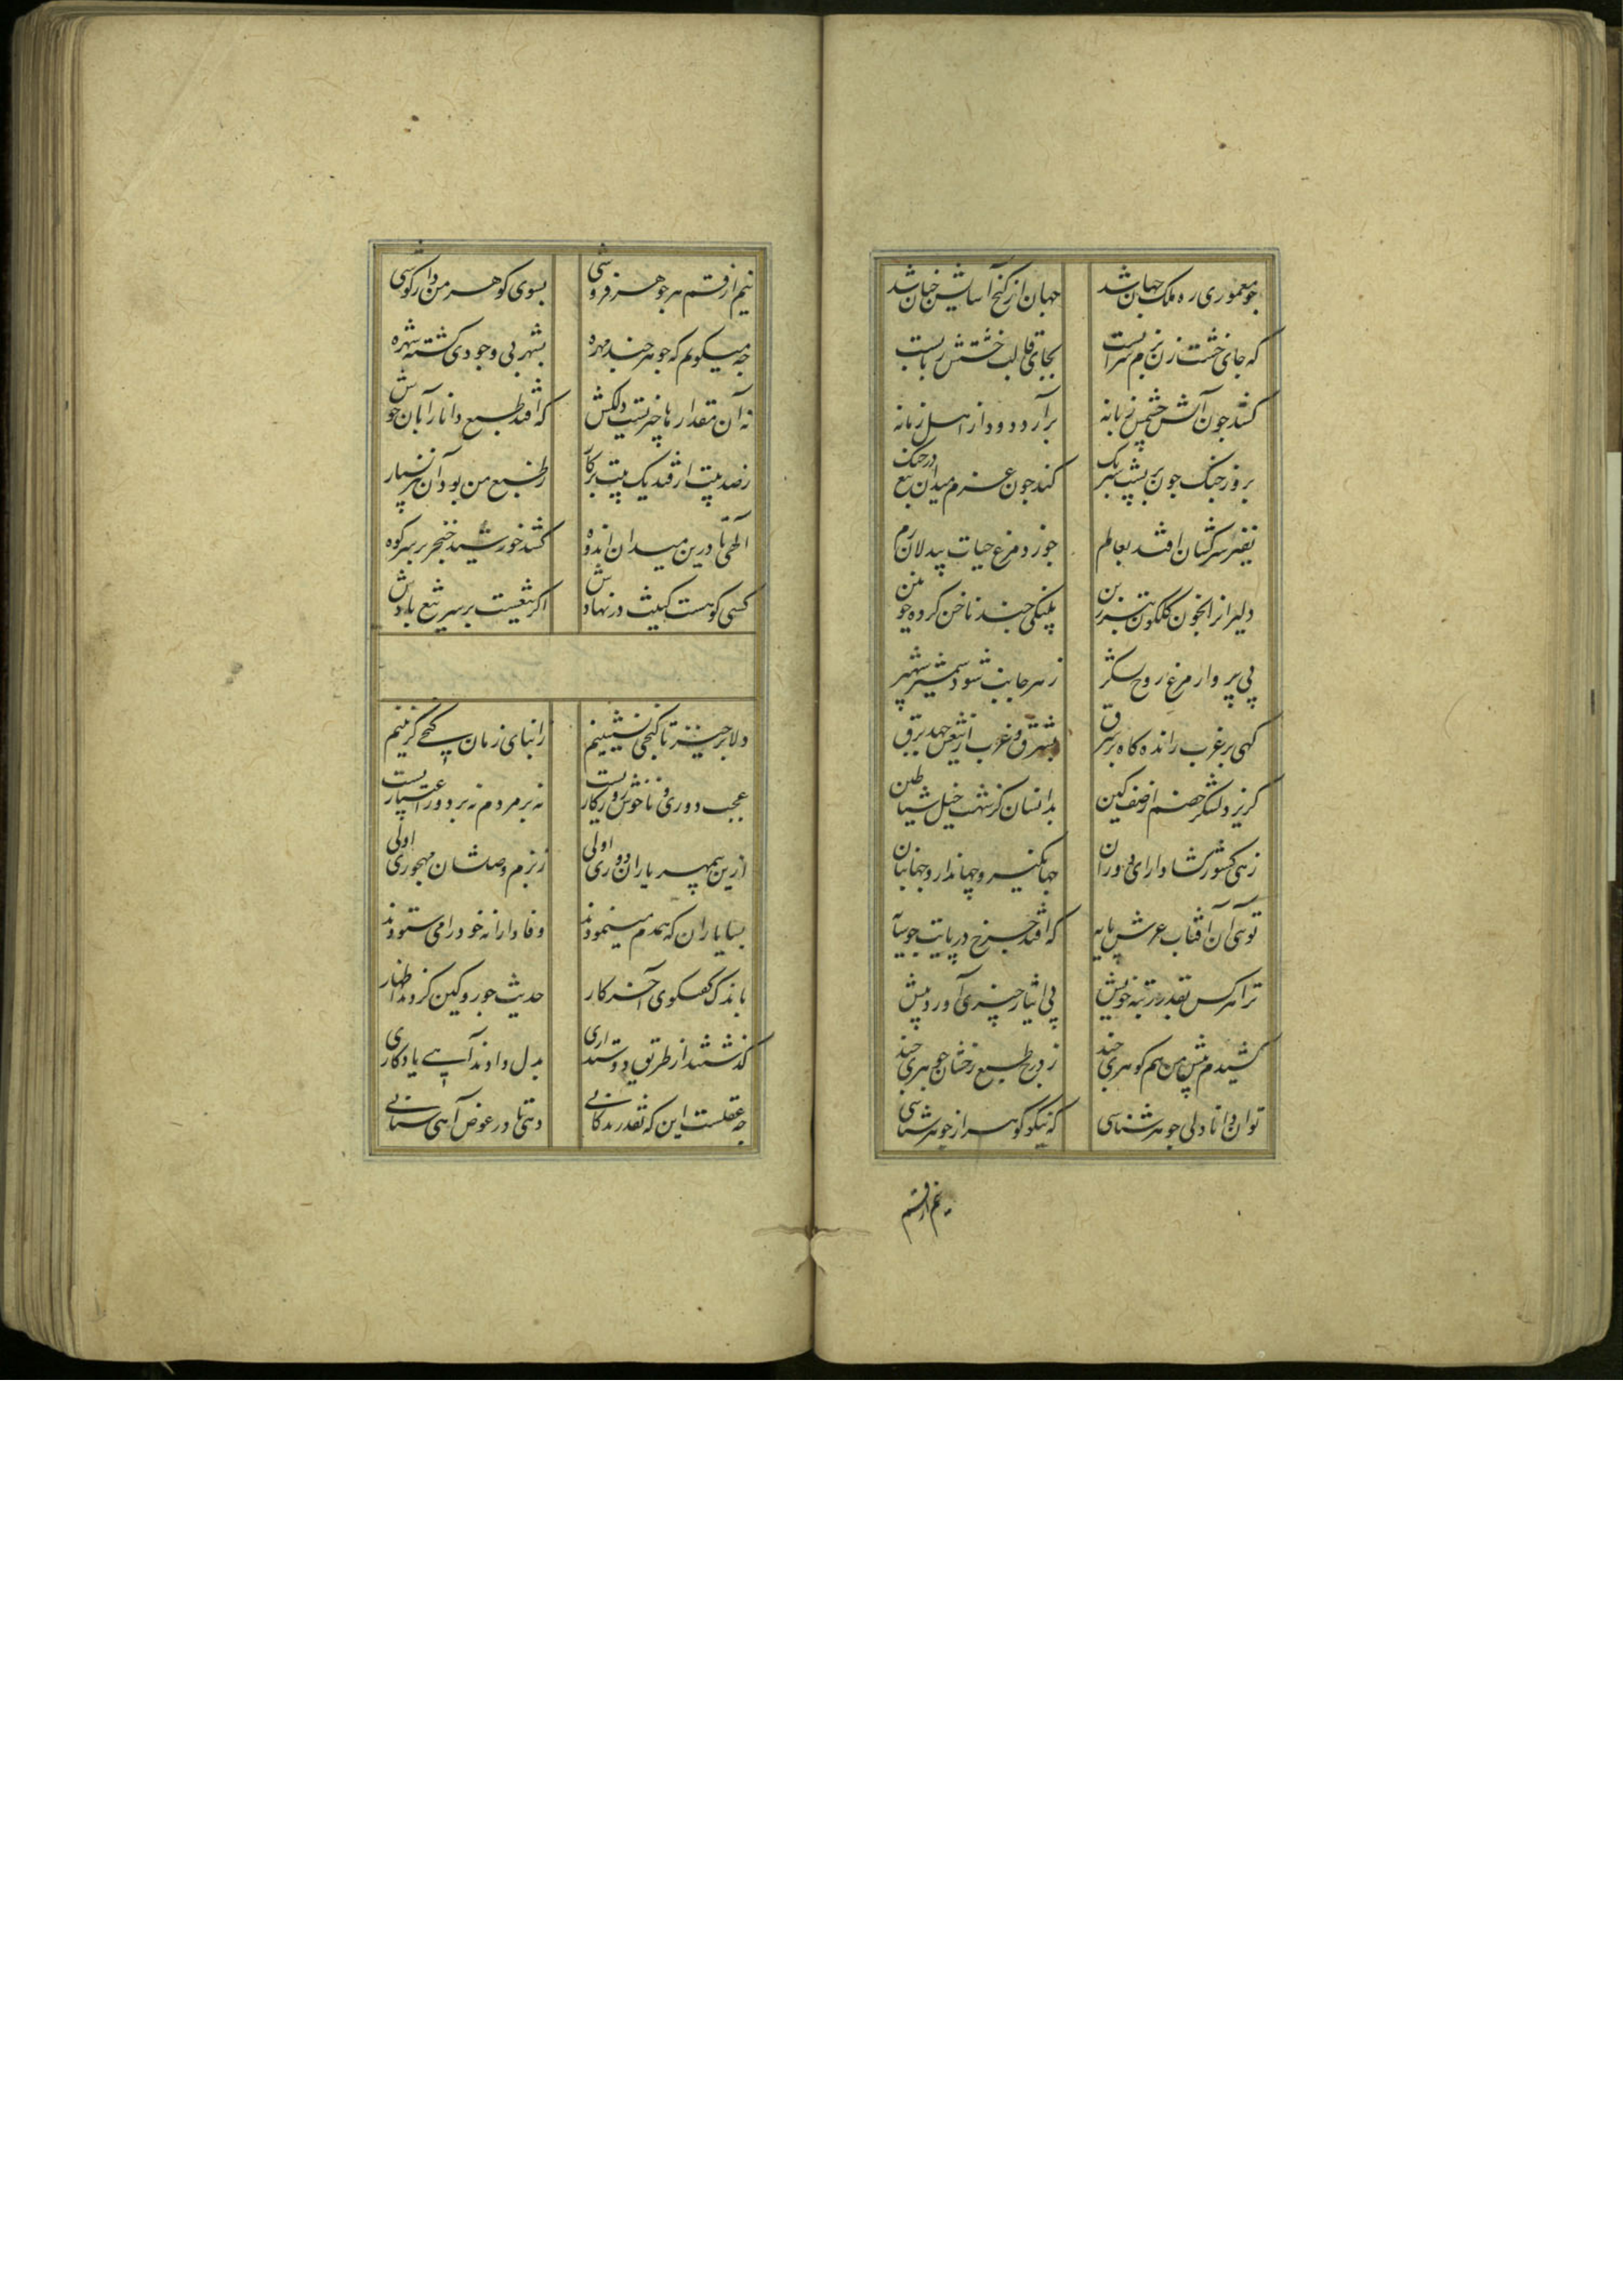 چو معموری ره ملک جهان شد جهان از گنج آسایش چنان شد
که جای خشت زن بزم سرابست بجای قالب خشتش ربابست
کشد چون آتش خشمش زبانه برآرد دود از اهل زمانه
بروز جنگ چون بر پشت شبرنگ کند چون عزم میدان تیغ در چنگ
نفیر سرکشان افتد بعالم خورد مرغ حیات پیدلان رم
دلیرانرا بخون گلگون تبرزین پلنگی چند ناخن کرده خونین
پی پرواز مرغ روح لشکر ز هر جانب شود شمشیر شهپر
گهی بر غرب رانده گاه بر شرق بشرق و غرب از تیغش جهد برق
گریزد لشکر خصم از صف کین بدانسان کز شهب خیل شیاطین
زهی کشورگشا دارای دوران جهانگیر و جهاندار و جهانبان
تویی آن آفتاب عرش پایه که افتد چرخ در پایت چو سایه
ترا هر کس بقدر رتبه خویش پی ایثار چیزی آورد پیش
کشیدم پیش من هم گوهری چند ز درج طبع رخشان جوهری چند
توان دانا دلی جوهر شناسی که نیکو گوهر از جوهر شناسی
نیم از قسم
نیم از قسم هر جوهر فروشی بسوی گوهر من دار گوشی
چه میگویم که جوهر چند مهره بشهر بی وجودی گشته شهره
نه آن مقدارها چیزیست دلکش که افتد طبع دانا را بآن خوش
ز صد بیت ار فتد یک بیت پرکار ز طبع من بود آن نیز بسیار
الهی تا درین میدان اندوه کشد خورشید خنجر بر سر کوه
کسی کو هست کینت در نهادش اگر تیغست بر سر تیغ بادش
دلا برخیز تا کنجی نشینیم ز ابنای زمان کنجی گزینیم
عجب دوری و ناخوش روزگاریست نه بر مردم نه بر دور اعتباریست
ازین بیمهر یاران دوری اولی ز بزم وصلشان مهجوری اولی
بسا یاران که همدم مینمودند وفادارانه خود را می ستودند
باندک گفتگوی آخر کار حدیث جور و کین کردند اظهار
گذشتند از طریق دوستداری بدل دادند آسیب یادگاری
چه عقلست این که نقد زندگانی دهی تا در عوض آهی ستانی